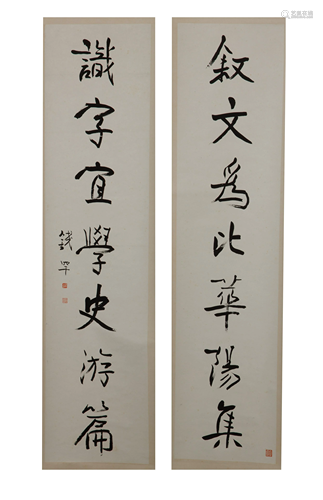 敘文爲比華陽集
識字宜學史游篇
錢罕